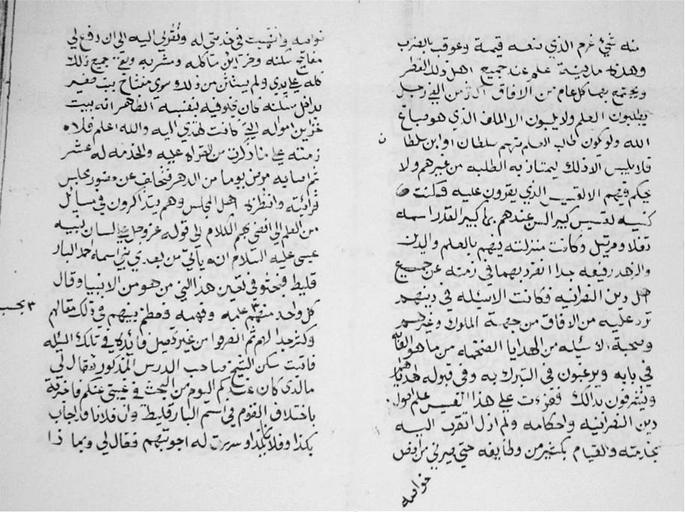 منه شيئ غرم الذي منعه قيمة وعوقب بالضرب
وهذه مدينة علم عند جميع اهل ذلك القطر
ويجتمع بها كل عام من الافاق من الفي رجل
يطلبون العلم ولا يلبسون الا الملف الذي هو صباغ
الله ولو يكون طالب العلم منهم سلطان او ابن سلطان
فلا يلبس الا ذلك ليمتاز به الطلبه من غيرهم ولا
يحكم فيهم الا القسيس الذي يقرون عليه فسكنت
كنيسه لقسيس كبير السن عندهم كبير القدر اسمه
نقلاو مرتيل وكانت منزلته فيهم بالعلم والدين
والزهد رفيعه جدا انفرد بها في زمنه عن جميع
اهل دين النصرانيه فكانت الاسئله في دينهم
ترد عليه من الافاق من جهة الملوك وغيرهم
وصحبة الاسئله من الهدايا الضخمه ما هو الغايه
في بابه ويرغبون في التبرك به وفي قبوله لهداياهم
ويتشرفون بذالك فقرءت على هذا القسيس علم اصول
دين النصرانيه واحكامه ولم ازل اتقرب اليه
بخدمته والقيام بكثير من وظايفه حتى صيرني من اخص
خواصه
خواصه وانتهيت في خدمتي له وتقربي اليه الى ان دفع لي
مفاتيح سكنه وخزاين ماكله ومشربه وبقي جميع ذلك
كله على يدي ولم يستثن من ذلك سوى مفتاح بيت صغير
بداخل سكنه كان يخلو فيه بنفسه الظاهر انه بيت
خزاين امواله التي كانت تهدى اليه والله اعلم فلازمته
على ما ذكرت من القراة عليه والخدمه له عشر
ثم اصابه مرض يوما من الدهر فتخلف عن حضور مجلس
قرايته وانتظره اهل المجلس وهم يتذاكرون في مسايل
من العلم الى ان افضى بهم الكلام الى قوله عز وجل على لسان نبيه
عيسى عليه السلام انه ياتي من بعدي نبي اسمه البار
قليط فبحثوا في تعيين هذا النبي من هو من الانبيا وقال
كل واحد منهم بحسب علمه وفهمه وعظم بينهم في ذلك مقالهم
وكثر جدالهم ثم انصرفوا من غير تحصيل فايدة في تلك المسئله
فاتيت مسكن الشيخ صاحب الدرس المذكور فقال لي
ما الذي كان عندكم اليوم من البحث في غيبتي عنكم فاخبرته
باختلاف القوم في اسم البارقليط وان فلانا قد اجاب
بكذا وفلان بكذا وسردت له اجوبتهم فقال لي وبما ذا